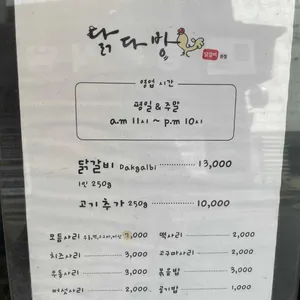 닭다방
닭갈비
영업 시간
평일 & 주말
a.m 11시 ~ p.m 10시
닭갈비 Dakgalbi 13,000
1인 250g
고기추가 250g 10,000
모듬사리 7,000 떡사리 2,000
치즈사리 3,000 고구마사리 2,000
우동사리 3,000 볶음밥 3,000
버섯사리 2,000 공기밥 1,000